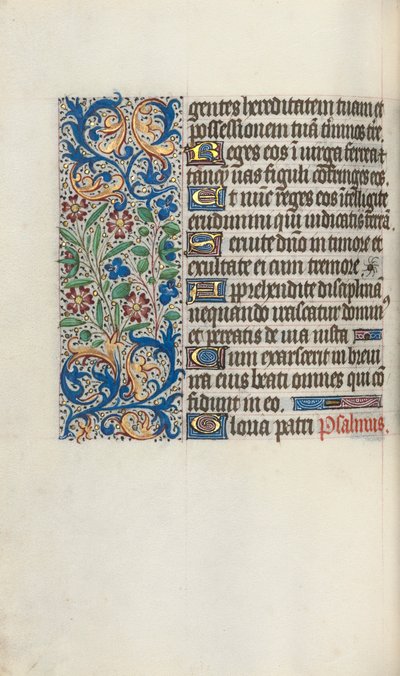 gentes hereditatem tuam et
possessionem tuā t̄minos tre.
Reges eos ī uirga ferrea et
tanq̄ uas figuli cōfringes eos.
Et nūc reges eos ītelligite
erudimini qui iudicatis terrā.
Seruite dn̄o in timore et
exultate ei cum tremore
Apprehendite disciplinā
nequando irascatur domin⁹
et pereatis de uia iusta
Cum exarserit in breui
ira eius beati omnes qui cō
fidunt in eo.
Gloria patri Psalmus.